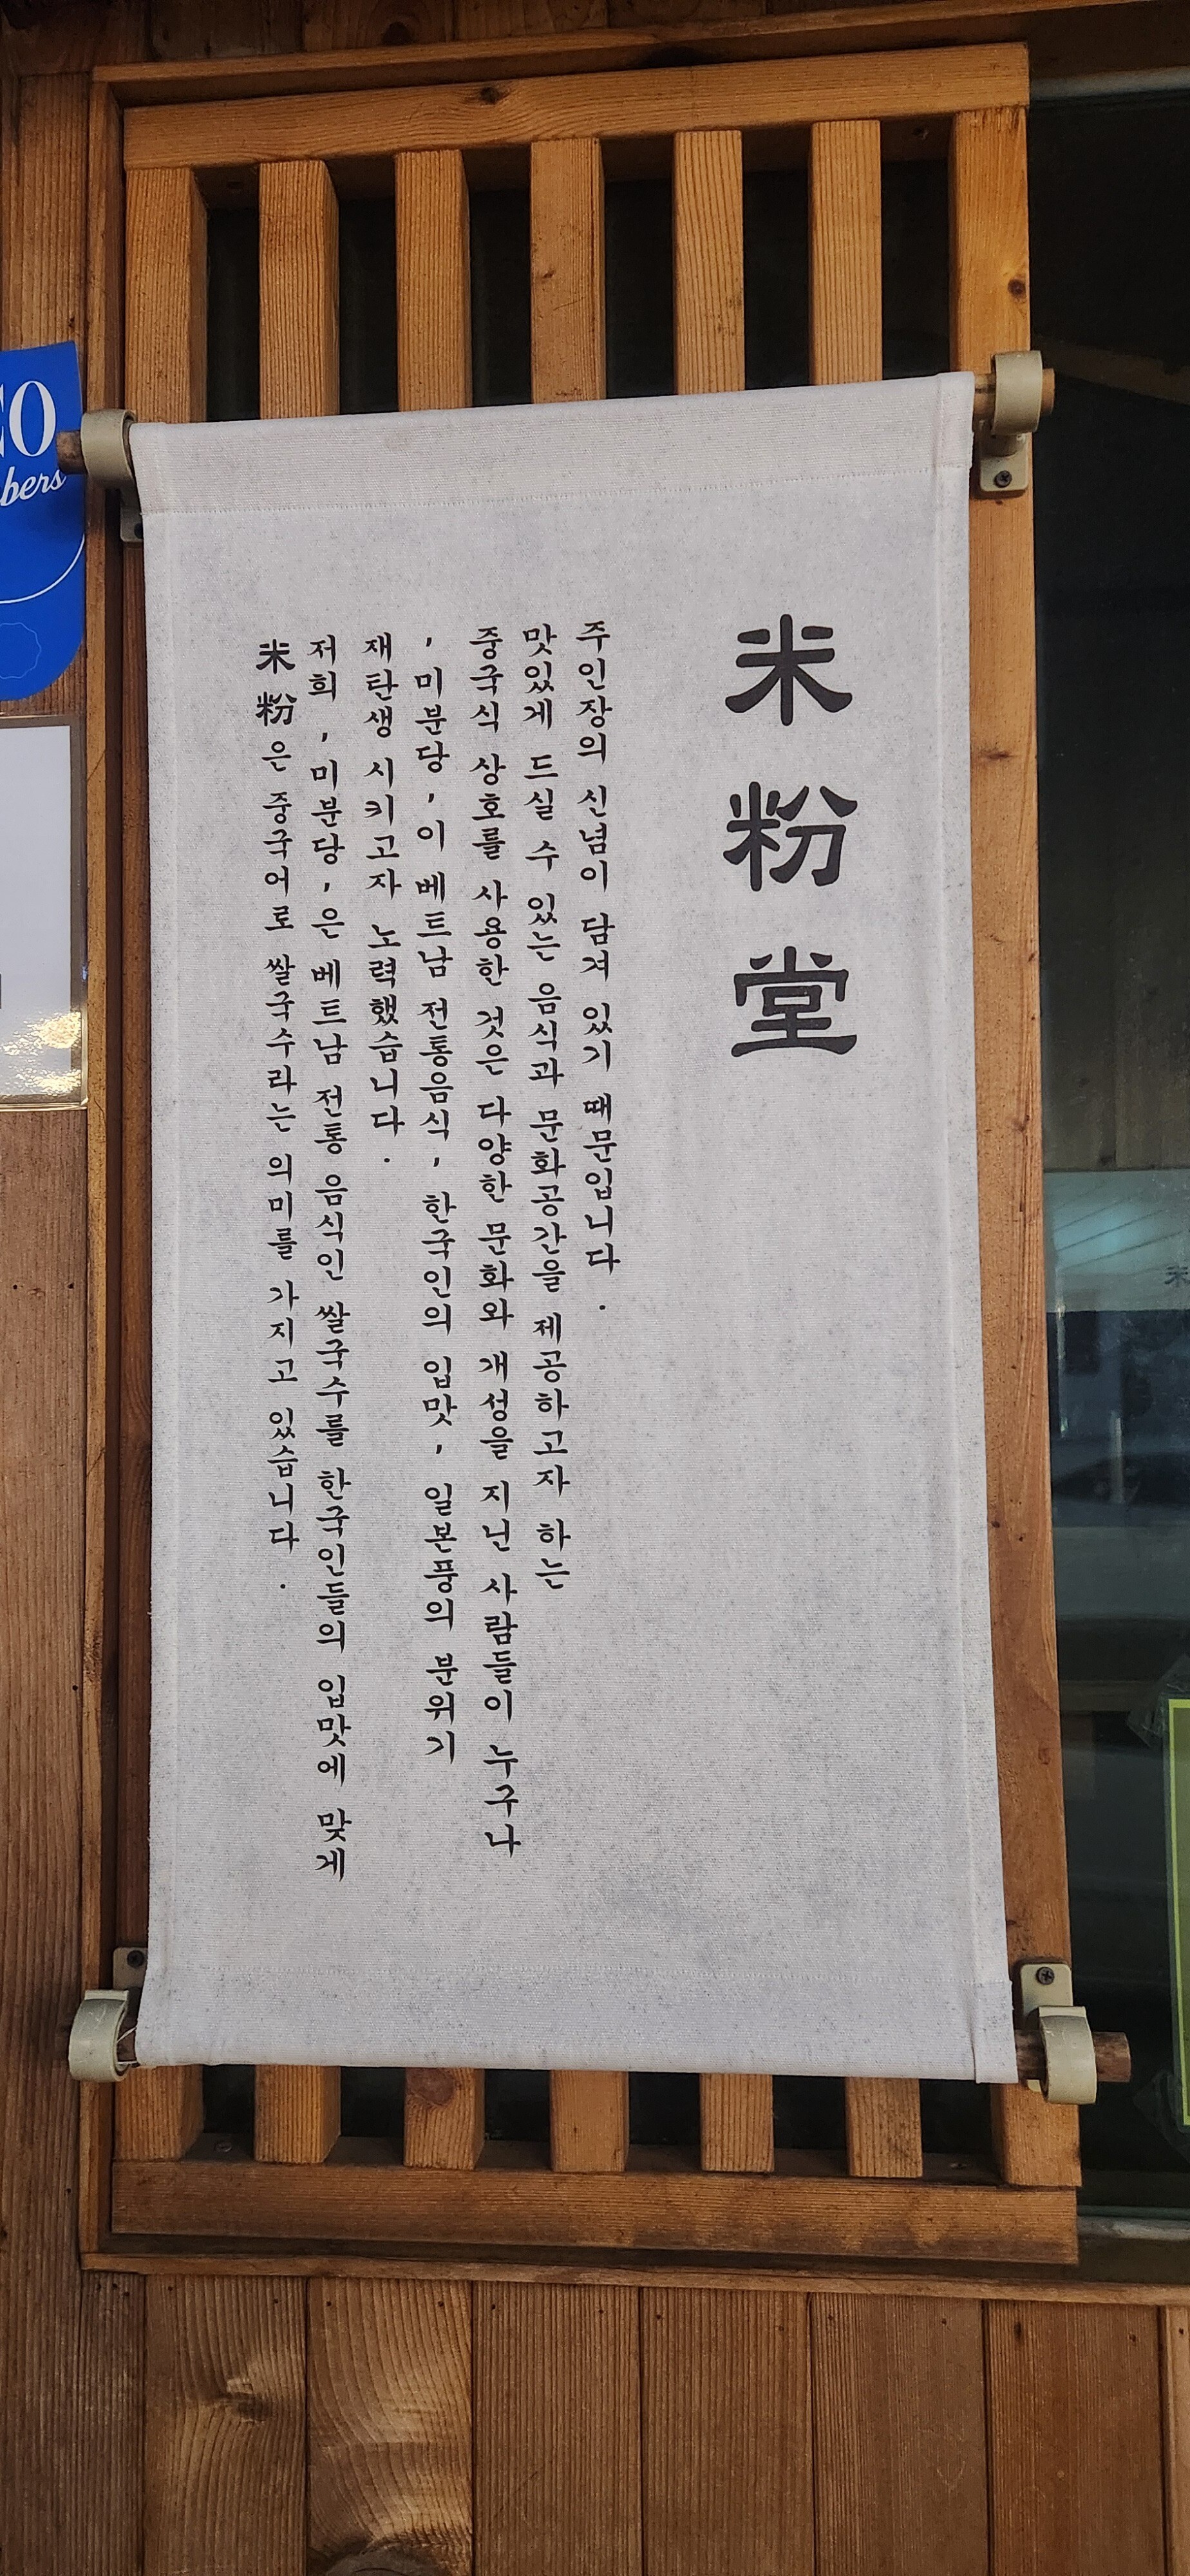 米粉堂
米粉은 중국어로 쌀국수라는 의미를 가지고 있습니다.
저희 '미분당'은 베트남 전통 음식인 쌀국수를 한국인들의 입맛에 맞게
재탄생 시키고자 노력했습니다.
'미분당'이 베트남 전통음식, 한국인의 입맛, 일본풍의 분위기
중국식 상호를 사용한 것은 다양한 문화와 개성을 지닌 사람들이 누구나
맛있게 드실 수 있는 음식과 문화공간을 제공하고자 하는
주인장의 신념이 담겨 있기 때문입니다.
bers